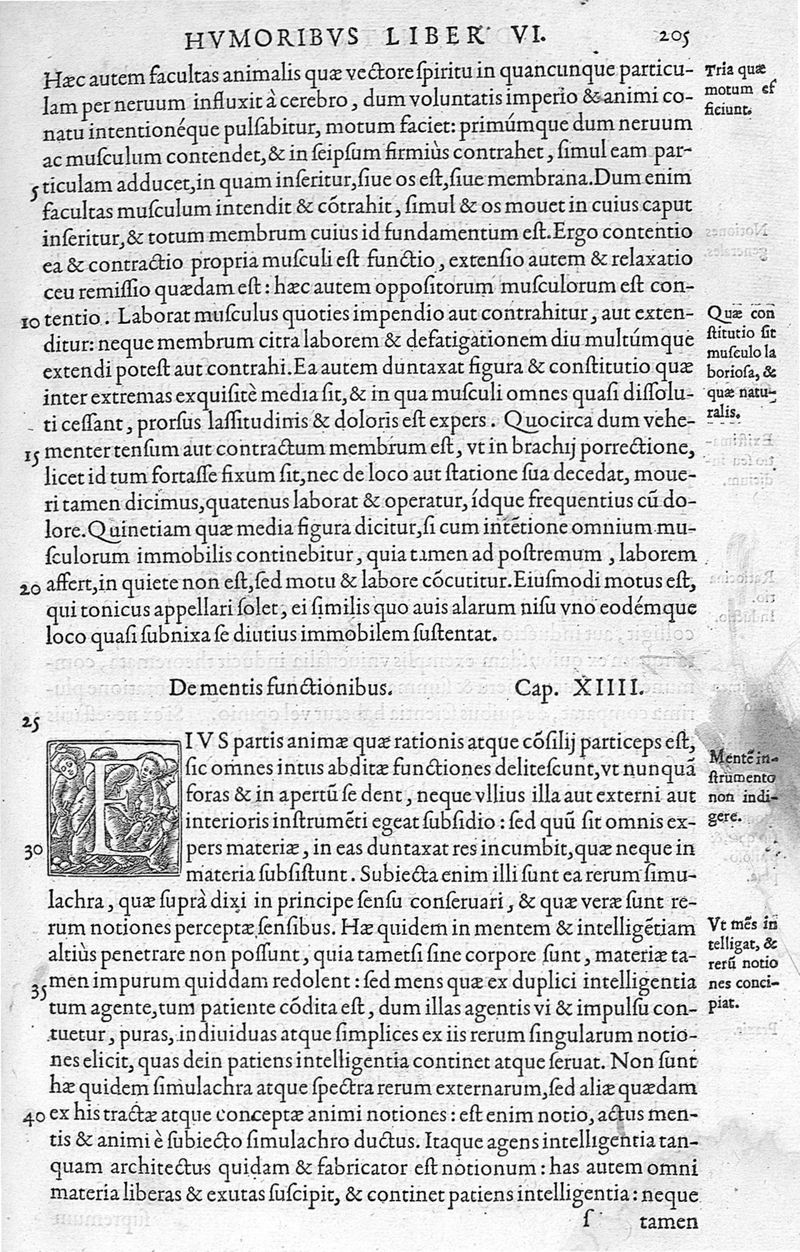 HVMORIBVS LIBER VI. 205
Hæc autem facultas animalis quæ vectore ſpiritu in quancunque particu-
lam per neruum influxit à cerebro, dum voluntatis imperio & animi co-
natu intentionéque pulſabitur, motum faciet: primúmque dum neruum
ac muſculum contendet, & in ſeipſum firmiùs contrahet, ſimul eam par-
5 ticulam adducet, in quam inſeritur, ſiue os eſt, ſiue membrana. Dum enim
facultas muſculum intendit & cōtrahit, ſimul & os mouet in cuius caput
inſeritur, & totum membrum cuius id fundamentum eſt. Ergo contentio
ea & contractio propria muſculi eſt functio, extenſio autem & relaxatio
ceu remiſſio quædam eſt: hæc autem oppoſitorum muſculorum eſt con-
10 tentio. Laborat muſculus quoties impendio aut contrahitur, aut exten-
ditur: neque membrum citra laborem & defatigationem diu multúmque
extendi poteſt aut contrahi. Ea autem duntaxat figura & conſtitutio quæ
inter extremas exquiſitè media ſit, & in qua muſculi omnes quaſi diſſolu-
ti ceſſant, prorſus laſſitudinis & doloris eſt expers. Quocirca dum vehe-
15 menter tenſum aut contractum membrum eſt, vt in brachij porrectione,
licet id tum fortaſſe fixum ſit, nec de loco aut ſtatione ſua decedat, moue-
ri tamen dicimus, quatenus laborat & operatur, ídque frequentius cū do-
lore. Quinetiam quæ media figura dicitur, ſi cum intētione omnium mu-
ſculorum immobilis continebitur, quia tamen ad poſtremum, laborem
20 affert, in quiete non eſt, ſed motu & labore cōcutitur. Eiuſmodi motus eſt,
qui tonicus appellari ſolet, ei ſimilis quo auis alarum niſu vno eodémque
loco quaſi ſubnixa ſe diutius immobilem ſuſtentat.
Tria quæ
motum ef
ficiunt.
Quæ con
ſtitutio ſit
muſculo la
borioſa, &
quæ natu-
ralis.
De mentis functionibus. Cap. XIIII.
25
EIVS partis animæ quæ rationis atque cōſilij particeps eſt,
ſic omnes intus abditæ functiones deliteſcunt, vt nunquā
foras & in apertū ſe dent, neque vllius illa aut externi aut
interioris inſtrumēti egeat ſubſidio: ſed quū ſit omnis ex-
30 pers materiæ, in eas duntaxat res incumbit, quæ neque in
materia ſubſiſtunt. Subiecta enim illi ſunt ea rerum ſimu-
lachra, quæ ſuprà dixi in principe ſenſu conſeruari, & quæ veræ ſunt re-
rum notiones perceptæ ſenſibus. Hæ quidem in mentem & intelligētiam
altiùs penetrare non poſſunt, quia tametſi ſine corpore ſunt, materiæ ta-
35 men impurum quiddam redolent: ſed mens quæ ex duplici intelligentia
tum agente, tum patiente cōdita eſt, dum illas agentis vi & impulſu con-
tuetur, puras, indiuiduas atque ſimplices ex iis rerum ſingularum notio-
nes elicit, quas dein patiens intelligentia continet atque ſeruat. Non ſunt
hæ quidem ſimulachra atque ſpectra rerum externarum, ſed aliæ quædam
40 ex his tractæ atque conceptæ animi notiones: eſt enim notio, actus men-
tis & animi è ſubiecto ſimulachro ductus. Itaque agens intelligentia tan-
quam architectus quidam & fabricator eſt notionum: has autem omni
materia liberas & exutas ſuſcipit, & continet patiens intelligentia: neque
Mentē in-
ſtrumento
non indi-
gere.
Vt mēs in
telligat, &
rerū notio
nes conci-
piat.
ſ tamen